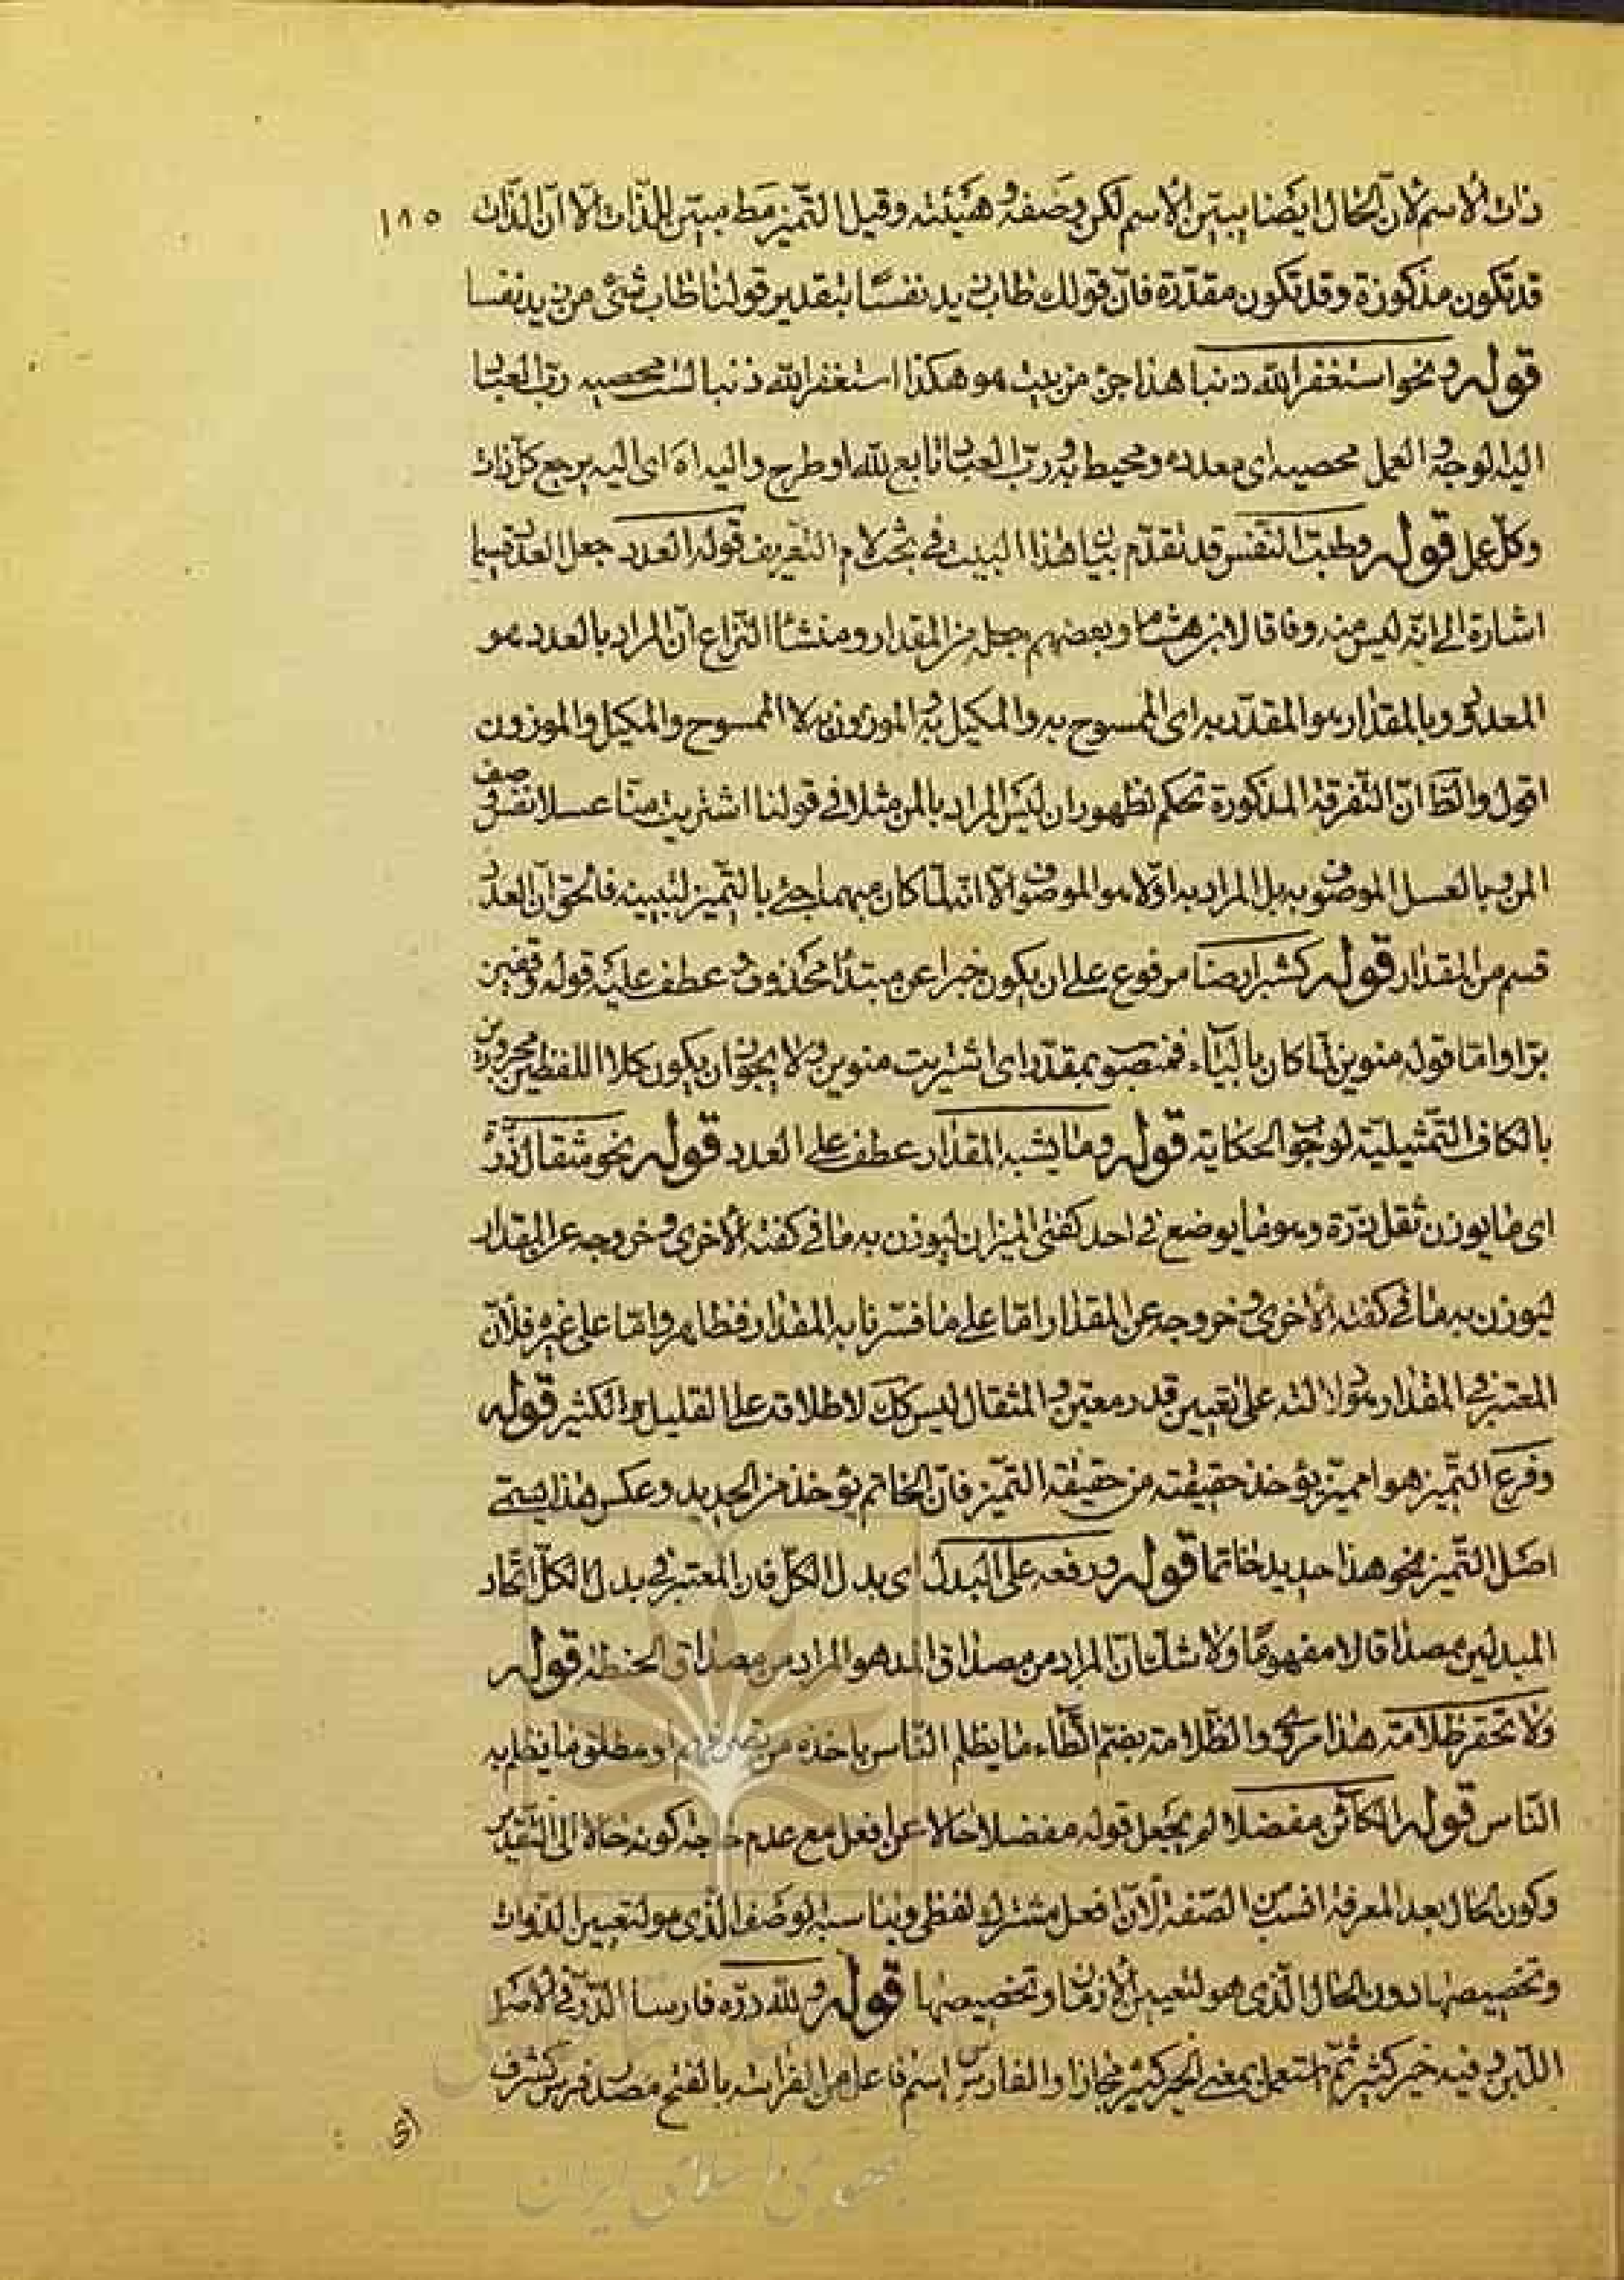 ذات الاسم لان الحال ايضا يبين الاسم لكن وصفه وهيئته وقيل التميز مط مبين للذات الا ان الذات ١٨٥
قد تكون مذكورة وقد تكون مقدرة فان قولك طاب زيد نفسا بتقدير قولنا طاب شئ من زيد نفسا
قوله ونحو استغفر الله ذنبا هذا جزء من بيت هو هكذا استغفر الله ذنبا لست محصيه رب العباد
اليه الوجه والعمل محصيه اى معدده ومحيط به ورب العباد تابع لله او طرح واليه اه اى اليه يرجع كل ذات
وكل عمل قوله وطبت النفس قد تقدم بيان هذا البيت فى بحث لام التعريف قوله العدد جعل العدد قسيما
اشارة الى انه ليس منه وفاقا لابن هشام وبعضهم جعله من المقدار ومنشأ النزاع ان المراد بالعدد هو
المعدود وبالمقدار هو المقدر به اى الممسوح به والمكيل به والموزون به لا الممسوح والمكيل والموزون
اقول والظ ان التفرقة المذكورة تحكم لظهور ان ليس المراد بالمن مثلا فى قولنا اشتريت منا عسلا نفس
المن وبالعسل الموصوف به بل المراد به اولا هو الموصوف الا انه لما كان مبهما جئ بالتميز لتبيينه فالحق ان العدد
قسم من المقدار قوله كشبر ارضا مرفوع على ان يكون خبرا عن مبتدا محذوف عطف عليه قوله وقفيز
برا واما قوله منوين لما كان بالياء فمنصوب بمقدر اى اشتريت منوين ولا يجوز ان يكون كلا اللفظين مجرورين
بالكاف التمثيلية لوجوب الحكاية قوله وما يشبه المقدار عطف على العدد قوله نحو مثقال ذرة
اى ما يوزن ثقل ذرة وهو ما يوضع فى احد كفتى الميزان ليوزن به ما فى كفته الاخرى وخروجه عن المقدار
ليوزن به ما فى كفته الاخرى وخروجه عن المقدار اما على ما فسرنا به المقدار فظاهر واما على غيره فلان
المعتبر فى المقدار هو دلالته على تعيين قدر معين والمثقال ليس كك لاطلاقه على القليل والكثير قوله
وفرع التميز هو مميز يؤخذ حقيقته من حقيقة التميز فان الخاتم يؤخذ من الحديد وعكس هذا يسمى
اصل التميز نحو هذا حديد خاتما قوله ورفعه على البدل اى بدل الكل فان المعتبر فى بدل الكل اتحاد
المبدلين مصداقا لا مفهوما ولا شك ان المراد من مصداق المد هو المراد من مصداق الحنطة قوله
ولا تحقر ظلامة هذا مركب والظلامة بضم الظاء ما يظلم الناس باخذه من او مطلق ما يظلم به
الناس قوله الكائن مفضلا لم يجعل قوله مفضلا حالا عن افعل مع عدم حاجة كونه حالا الى التقدير
وكون الحال بعد المعرفة انسب من الصفة لان افعل مشترك لفظى ويناسبه الوصف الذى هو لتعيين الذوات
وتخصيصها دون الحال الذى هو لتعيين الازمان وتخصيصها قوله ولله دره فارسا الدر فى الاصل
اللبن وفيه خير كثير ثم استعمل بمعنى الخير كثير مجازا والفارس اسم فاعل من الفراسة بالفتح مصدر فرس كشرف
اى
جمهورى اسلامى ايران